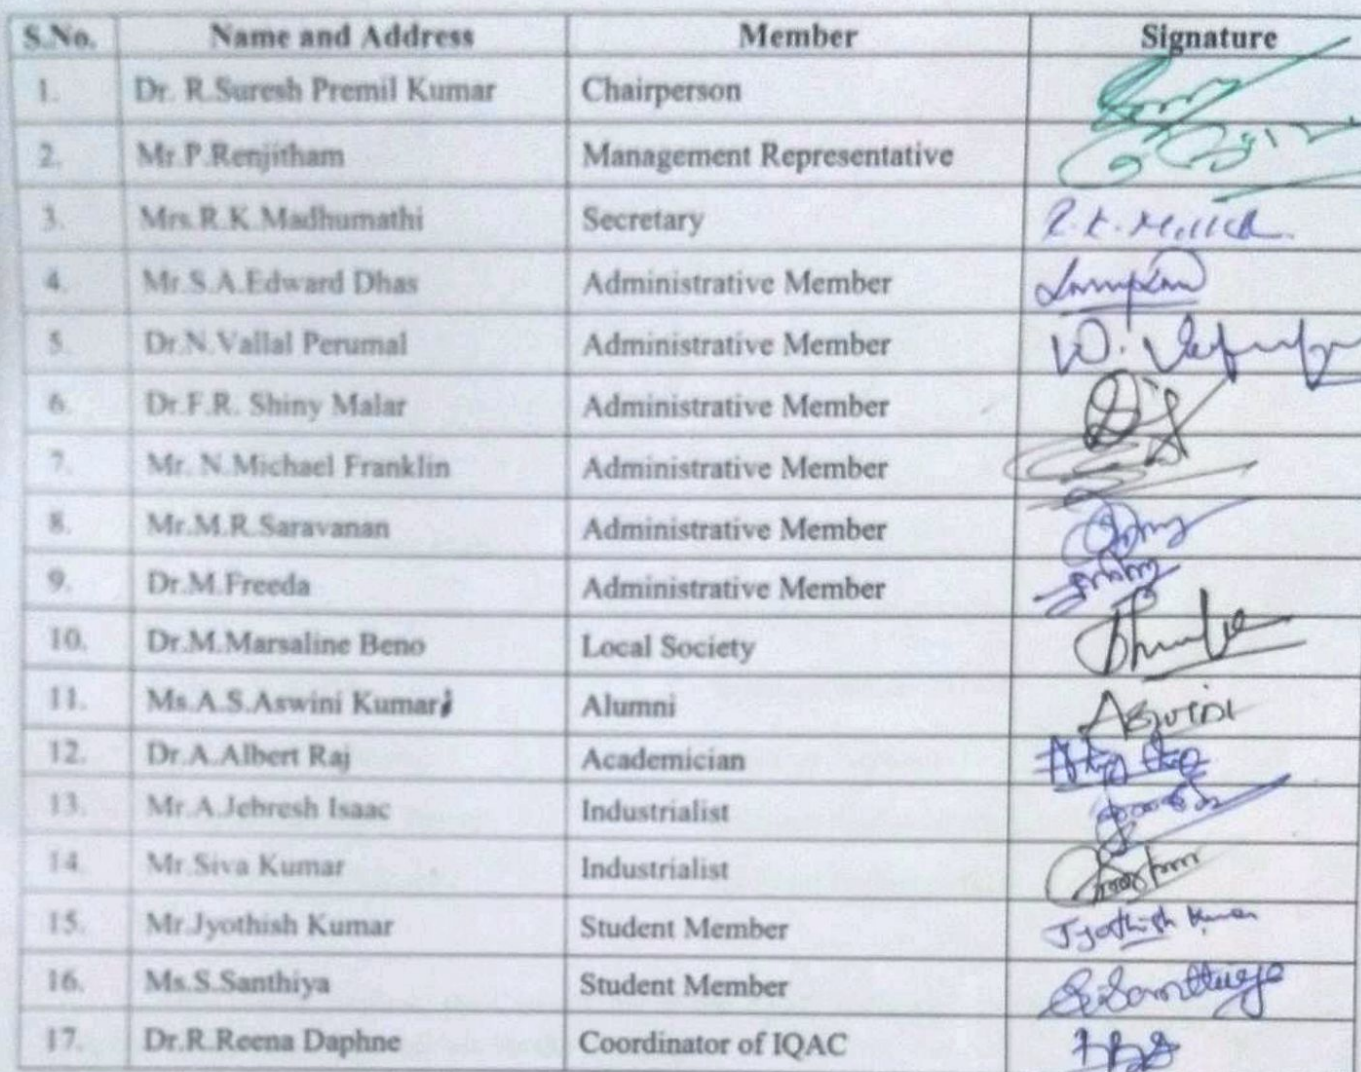 S.No. Name and Address Member Signature
1. Dr. R.Suresh Premil Kumar Chairperson
2. Mr.P.Renjitham Management Representative
3. Mrs.R.K.Madhumathi Secretary
4. Mr.S.A.Edward Dhas Administrative Member
5. Dr.N.Vallal Perumal Administrative Member
6. Dr.F.R. Shiny Malar Administrative Member
7. Mr. N.Michael Franklin Administrative Member
8. Mr.M.R.Saravanan Administrative Member
9. Dr.M.Freeda Administrative Member
10. Dr.M.Marsaline Beno Local Society
11. Ms.A.S.Aswini Kumari Alumni Aswini
12. Dr.A.Albert Raj Academician
13. Mr.A.Jebresh Isaac Industrialist
14. Mr.Siva Kumar Industrialist
15. Mr.Jyothish Kumar Student Member Jyothish Kumar
16. Ms.S.Santhiya Student Member S.Santhiya
17. Dr.R.Reena Daphne Coordinator of IQAC